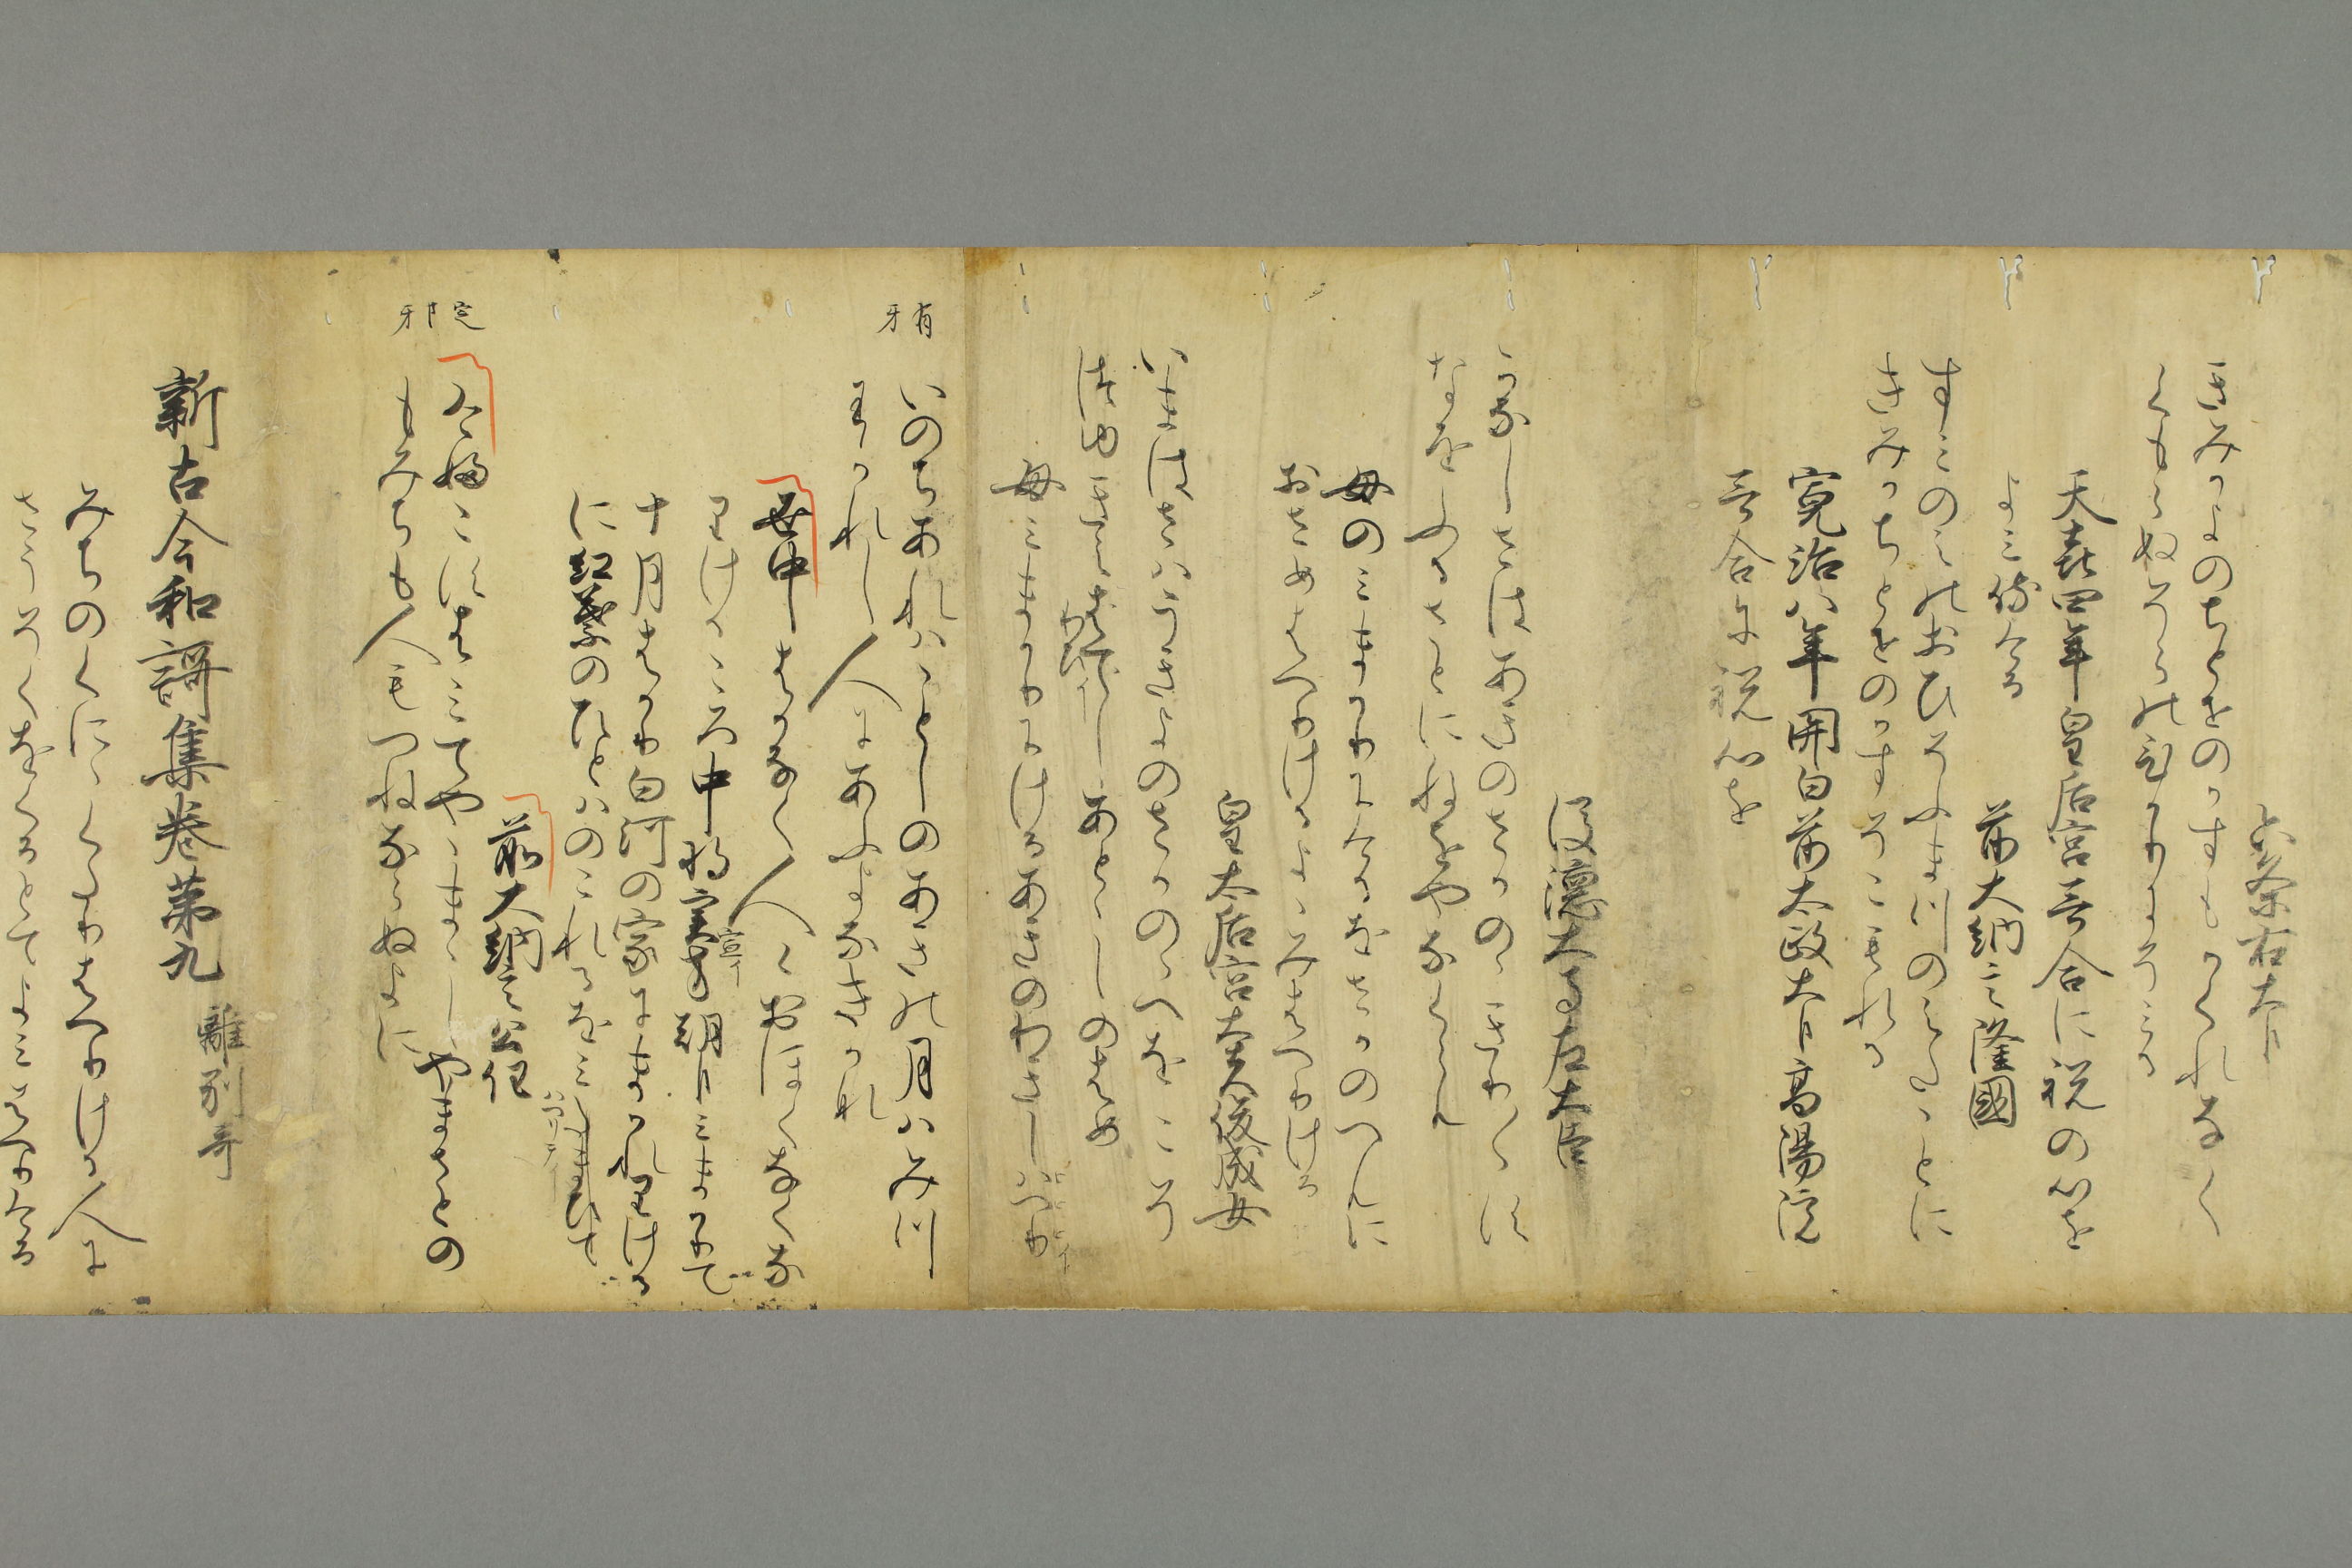 六条右大臣
きみかよのちとせのかすもかくれなく
くもらぬそらの光にそみる
天喜四年皇后宮哥合に祝の心を
よみ侍ける 前大納言隆國
すみのえにおひそふまつのえたことに
きみかちとせのかすそこもれる
寛治八年関白前太政大臣高陽院
哥合に祝心を
後徳大寺左大臣
かなしさはあきのさかのゝきり〳〵す
なをふるさとにねをやなくらん
母のみまかりにけるをさかのへんに
おさめ侍けるよゝみ侍ける
皇太后宮大夫俊成女
いまはさはうきよのさかのゝへをこそ
つゆきえはてしあとゝしのはめ
母みまかりにけるあきのわきしける
有 牙
いのちあれはことしのあきの月はみつ
わかれし人にあふよなきかな
世中はかなく人々おほくなくなり
侍けるころ中将宣方朝臣みまかりて
十月はかり白河の家にまかれりけるに
に紅葉のひとはのこれるをみ侍て
前大納言公任
定 牙
けふこすはみてやゝまゝしやまさとの
もみちも人もつねならぬよに
新古今和謌集卷第九 離別哥
みちのくにゝくたり侍ける人に
さうそくをくるとてよみ侍ける